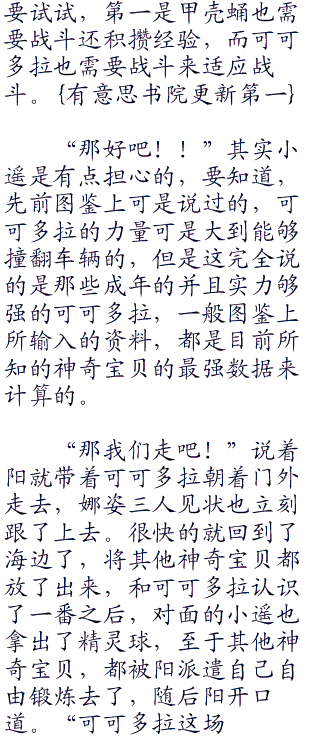 要试试，第一是甲壳蛹也需
要战斗还积攒经验，而可可
多拉也需要战斗来适应战
斗。{有意思书院更新第一}
“那好吧！！”其实小
遥是有点担心的，要知道，
先前图鉴上可是说过的，可
可多拉的力量可是大到能够
撞翻车辆的，但是这完全说
的是那些成年的并且实力够
强的可可多拉，一般图鉴上
所输入的资料，都是目前所
知的神奇宝贝的最强数据来
计算的。
“那我们走吧！”说着
阳就带着可可多拉朝着门外
走去，娜姿三人见状也立刻
跟了上去。很快的就回到了
海边了，将其他神奇宝贝都
放了出来，和可可多拉认识
了一番之后，对面的小遥也
拿出了精灵球，至于其他神
奇宝贝，都被阳派遣自己自
由锻炼去了，随后阳开口
道。“可可多拉这场